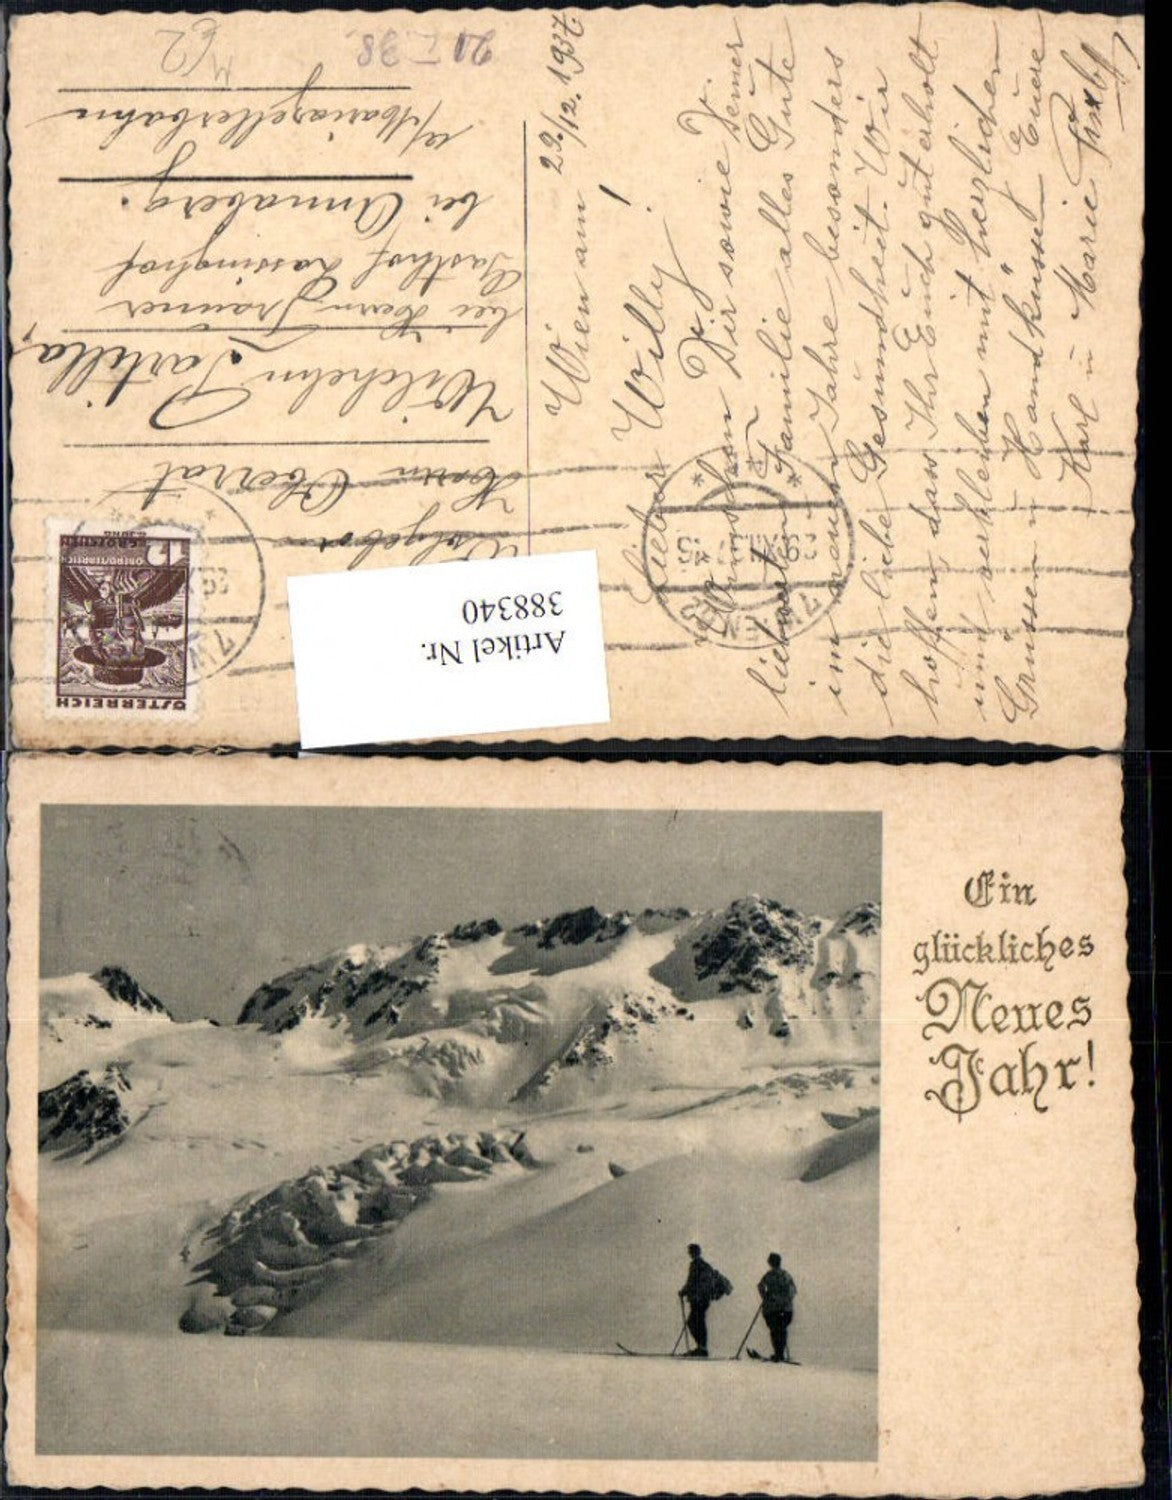 Wien am 29./12. 1937.
Lieber Willy!
Wünschen Dir sowie Deiner
liebwerten Familie alles Gute
im neuen Jahre besonders
die liebe Gesundheit. Wir
hoffen dass Ihr Euch gut erholt
und verbleiben mit herzlichen
Grüssen u. Handküssen Euere
Karl u Marie
Herrn Oberrat
Wilhelm
bei Herrn
Gasthof Lassinghof
bei Annaberg.
Mariazellerbahn
ÖSTERREICH
12
GROSCHEN
OBERÖSTERREICH
Artikel Nr.
388340
Ein
glückliches
Neues
Jahr!